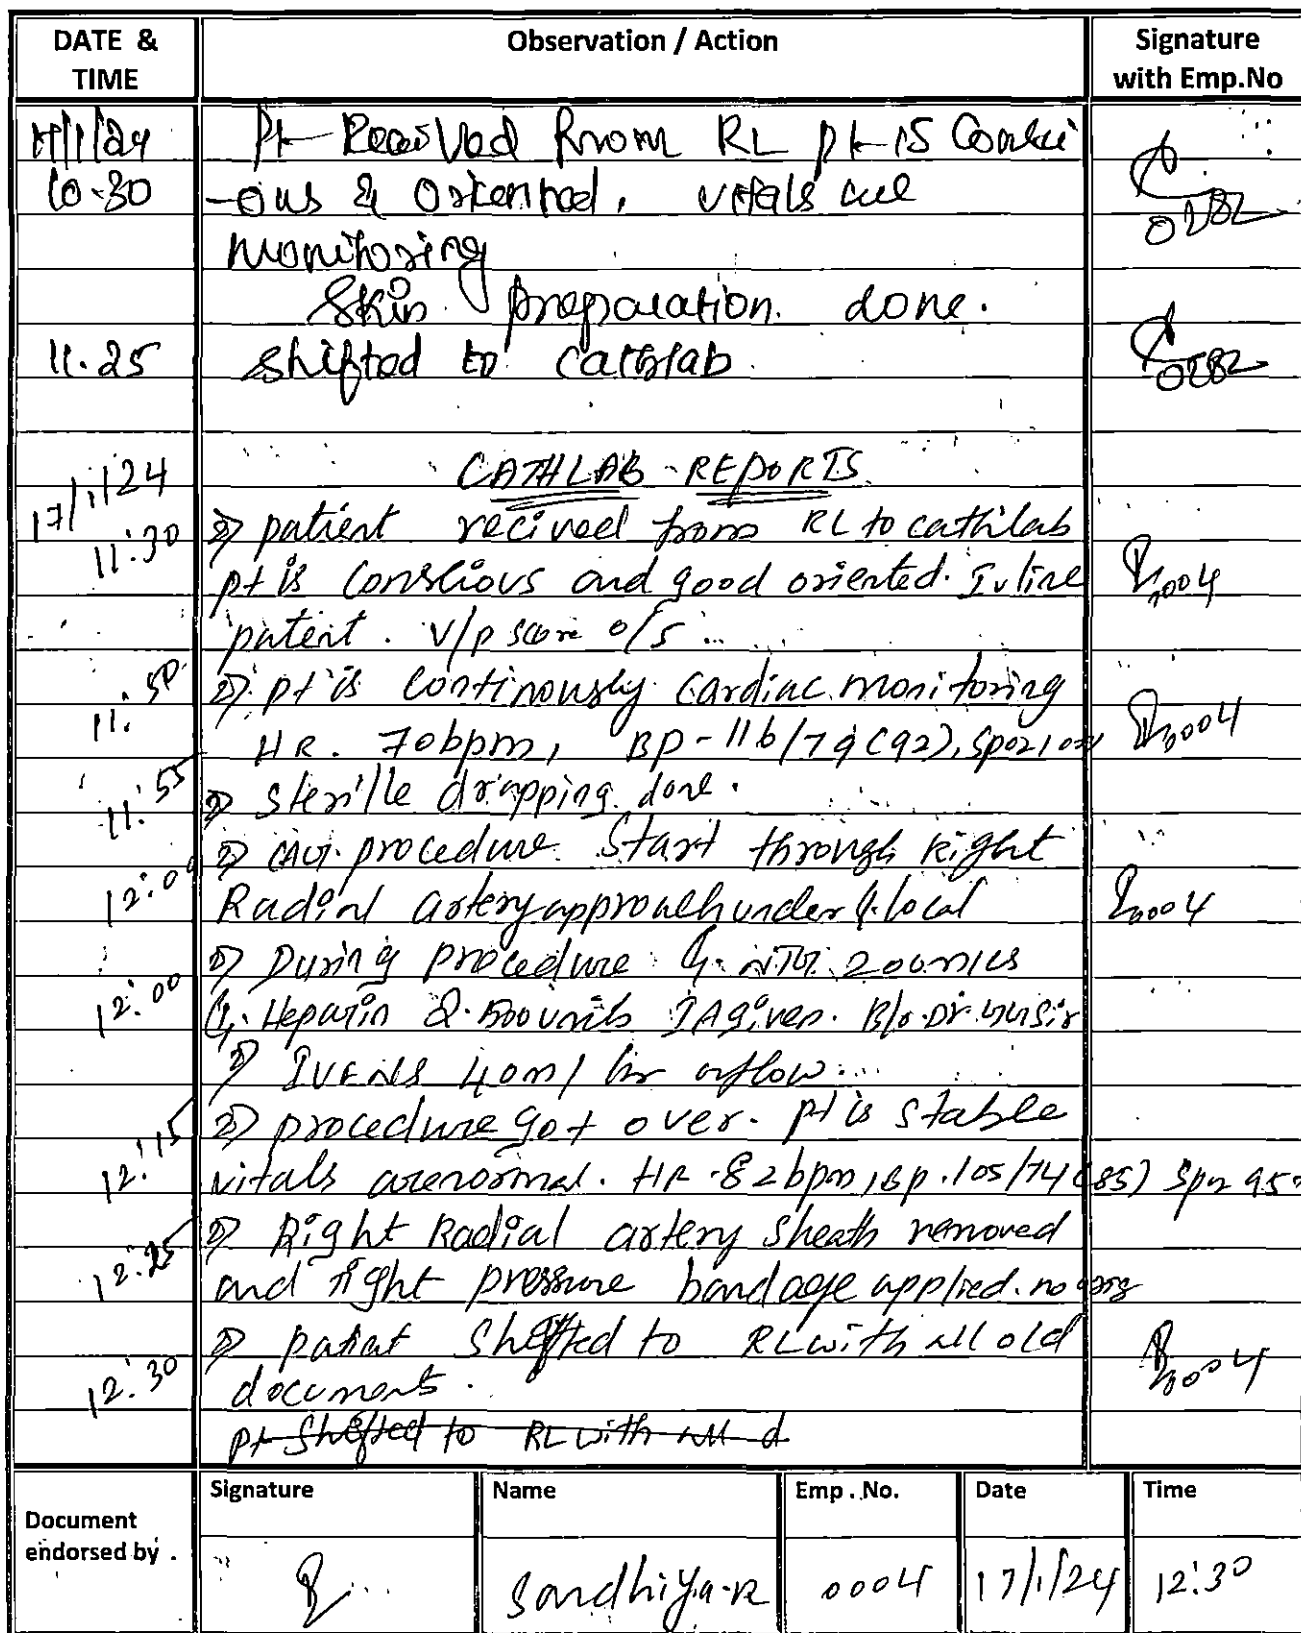 DATE & TIME Observation / Action Signature with Emp.No
17/1/24 Pt Received from RL pt is Consci
10.30 -ous & Oriented. vitals are 0282
monitoring
Skin preparation done.
11.25 shifted to cathlab. 0282
17/1/24 CATHLAB - REPORTS
11:30 patient recived from RL to cathlab
pt is Conscious and good oriented. Iv line 0004
patent. V/P score 0/5
11:50 pt is Continously Cardiac monitoring
HR. 70bpm, BP-116/79 (92), SpO2 0004
11:55 sterille drapping done.
procedure Start through Right
12:00 Radial artery approach under local 0004
During procedure 200mcs
12:00 Heparin units IA given. B/o. Dr. sir
40ml/hr
procedure got over. pt is stable
12:15 vitals are normal. HR-82bpm, BP.105/74 (85) SpO2 95%
Right Radial artery Sheath removed
12:25 and tight pressure bandage applied. no
patient Shifted to RL with all old
12:30 documents. 0004
pt Shifted to RL with all d
Signature Name Emp. No. Date Time
Document endorsed by.
Sandhiya.R 0004 17/1/24 12:30